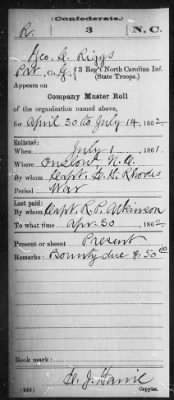 (Confederate.)
R. 3 N. C.
Geo. R. Riggs
Pvt., Co. G, 3 Reg't North Carolina Inf.
(State Troops.)
Appears on
Company Muster Roll
of the organization named above,
for April 30 to July 14, 1862
Enlisted:
When July 1, 1861.
Where Onslow N.C.
By whom Capt. Rhodes
Period War
Last paid:
By whom Capt. R. P. Atkinson
To what time Apr. 30, 1862
Present or absent Present
Remarks: Bounty due $50.00
Book mark:
(642) Copyist.